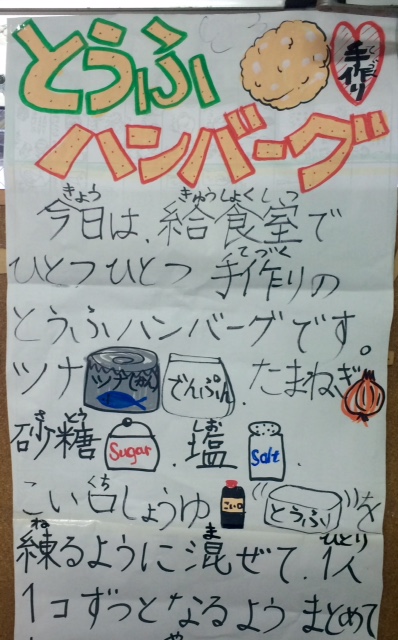 とうふ
手作り
ハンバーグ
今日は、給食室で
ひとつひとつ 手作りの
とうふハンバーグです。
ツナ ツナ(かん) でんぷん、たまねぎ
砂糖 Sugar 、塩 Salt 、
こい口しょうゆ こい口 とうふ を
練るように混ぜて、1人
1コずつとなるよう まとめて